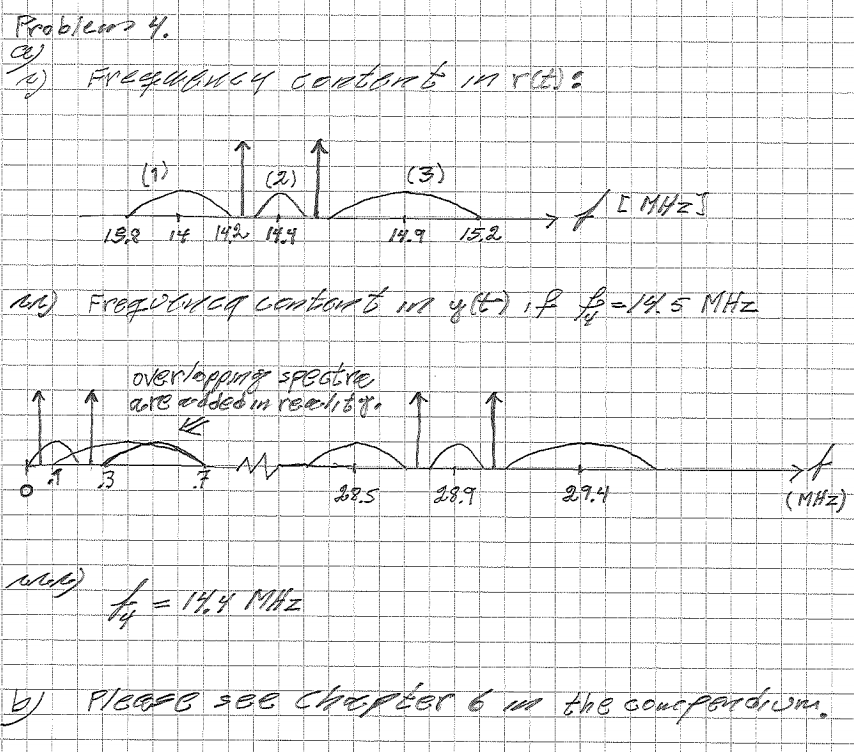 Problem 4.
a)
i) Frequency content in r(t):
(1) (2) (3)
f [MHz]
13.8 14 14.2 14.4 14.9 15.2
ii) Frequency content in y(t) if f4=14.5 MHz
overlapping spectra
are added in reality.
f
0 .1 .3 .7 28.5 28.9 29.4 (MHz)
iii)
f4 = 14.4 MHz
b) Please see Chapter 6 in the compendium.